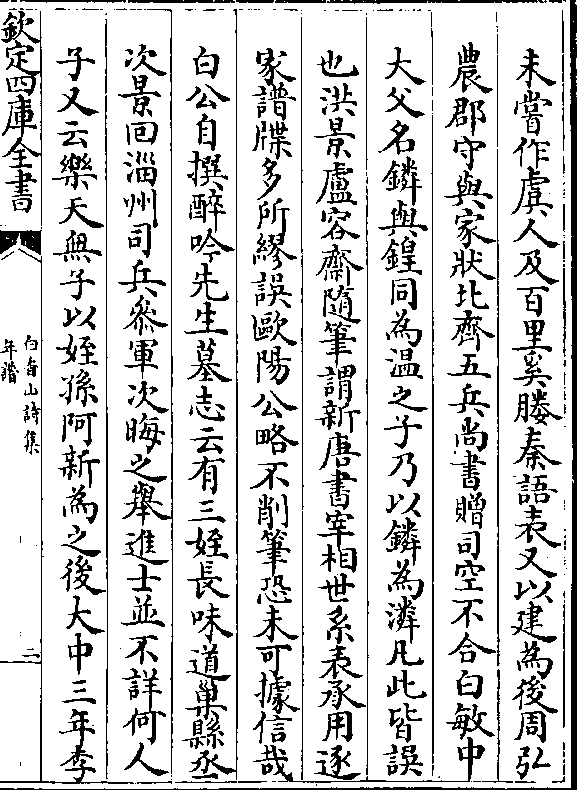 未嘗作虞人及百里奚媵秦語表又以建為後周弘
農郡守與家狀北齊五兵尚書贈司空不合白敏中
大父名鏻與鍠同為温之子乃以鏻為潾凡此皆誤
也洪景盧容齋隨筆謂新唐書宰相世系表承用逐
家譜牒多所繆誤歐陽公略不削筆恐未可據信哉
白公自撰醉吟先生墓志云有三姪長味道巢縣丞
次景回淄州司兵叅軍次晦之舉進士並不詳何人
子又云樂天無子以姪孫阿新為之後大中三年李
欽定四庫全書
白香山詩集
年譜
二